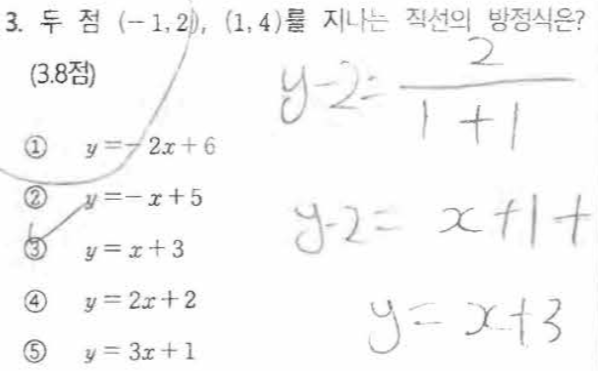 3. 두 점 (-1, 2), (1, 4)를 지나는 직선의 방정식은?
(3.8점)
① y=-2x+6
② y=-x+5
③ y=x+3
④ y=2x+2
⑤ y=3x+1
y-2= 2/1+1
y-2= x+1+
y=x+3